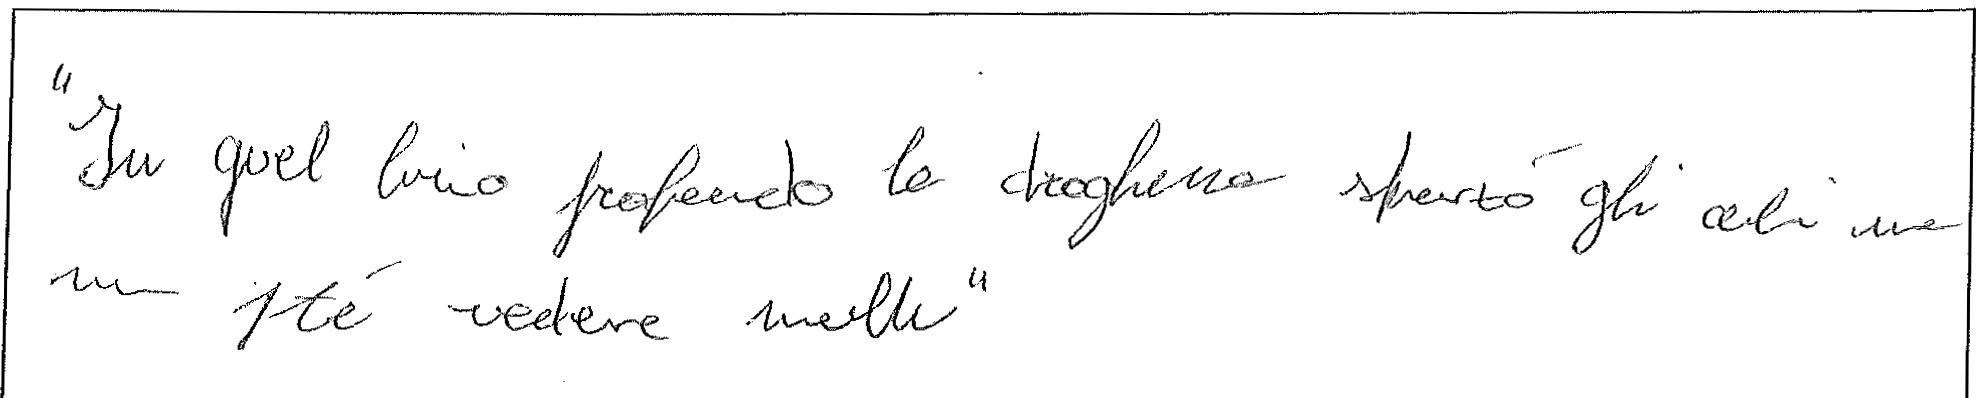 "In quel buio profondo la draghessa sforzò gli occhi ma
non poté vedere nulla"